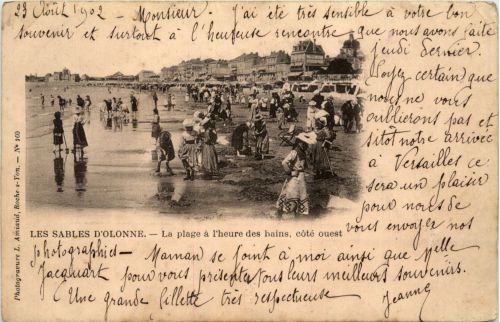 23 Août 1902 — Monsieur. J'ai été très sensible à votre bon
souvenir et surtout à l'heureuse rencontre que nous avons faite
jeudi dernier.
Soyez certain que
nous ne vous
oublierons pas et
sitôt notre arrivée
à Versailles ce
sera un plaisir
pour nous de
vous envoyer nos
photographies — Maman se joint à moi ainsi que Melle
Jacquart pour vous présenter tous leurs meilleurs souvenirs.
Une grande fillette très respectueuse
Jeanne
LES SABLES D'OLONNE. — La plage à l'heure des bains, côté ouest
Photogravure L. Amiaud, Roche s-Yon. — No 105